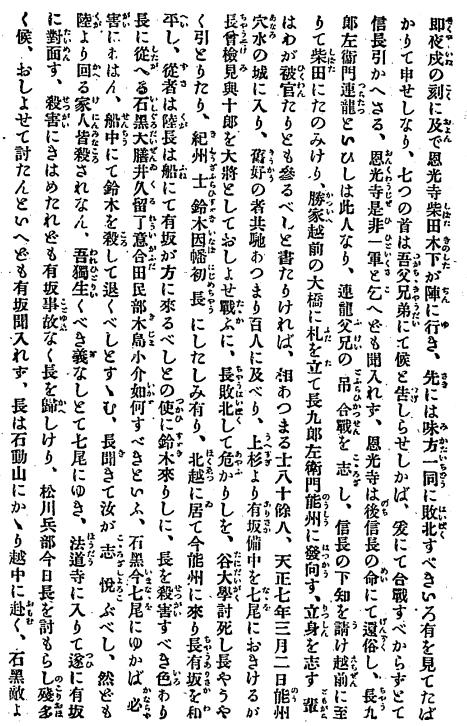 即夜戌の刻に及で恩光寺柴田木下が陣に行き、先には味方一同に敗北すべきいろ有を見てたば
かりて申せしなり、七つの首は吾父兄弟にて候と告しらせしかば、爰にて合戰すべからずとて
信長引かへさる、恩光寺是非一軍と乞へども聞入れず、恩光寺は後信長の命にて還俗し、長九
郎左衞門連龍といひしは此人なり、連龍父兄の弔合戰を志し、信長の下知を請け越前に至
りて柴田にたのみけり、勝家越前の大橋に札を立て長九郎左衞門能州に發向す、立身を志す輩
はわが被官たりとも參るべしと書たりければ、相あつまる士八十餘人、天正七年三月二日能州
穴水の城に入り、舊好の者共馳あつまり百人に及べり、上杉より有坂備中を七尾におきけるが
長曾檢見與十郎を大將としておしよせ戰ふに、長敗北して危かりしを、谷大學討死し長やうや
く引とりたり、紀州士鈴木因幡初長にしたしみ有り、北越に居て今能州に來り長有坂を和
平し、從者は陸長は船にて有坂が方に來るべしとの使に鈴木來りしに、長を殺害すべき色あり
長に從へる石黑大膳井久留了意合田民部木島小介如何すべきといふ、石黑今七尾にゆかば必
害にあはん、船中にて鈴木を殺して退くべしとすゝむ、長聞きて汝が志悅ぶべし、然ども
陸より回る家人皆殺されなん、吾獨生くべき義なしとて七尾にゆき、法道寺に入りて遂に有坂
に對面す、殺害にきはめたれども有坂事故なく長を歸しけり、松川兵部今日長を討もらし殘多
く候、おしよせて討たんといへども有坂聞入れず、長は石動山にかゝり越中に赴く、石黑敵よ